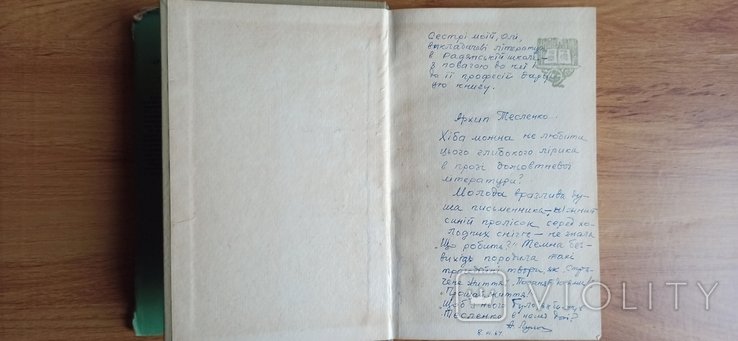 Сестрі моїй, Олі,
викладачеві літератури
в Радянській школі –
з повагою до неї і
до її професії дарую
цю книгу.
Архип Тесленко...
Хіба можна не любити
цього глибокого лірика
в прозі дожовтневої
літератури?
Молода вразлива ду-
ша письменника,
синій пролісок серед хо-
лодних снігів – не знала
"Що робити?" Темна без-
вихідь породила такі
твори, як "Страче-
не життя",
"Прощай життя!"
Щоб з нього було
Тесленка в наші дні?
VIOLITY